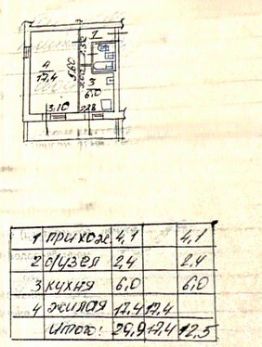 1
4
17,4
5,60
3
6,0
3,10
1 прихож. 4,1 4,1
2 с/узел 2,4 2,4
3 кухня 6,0 6,0
4 жилая 17,4 17,4
Итого: 29,9 17,4 12,5